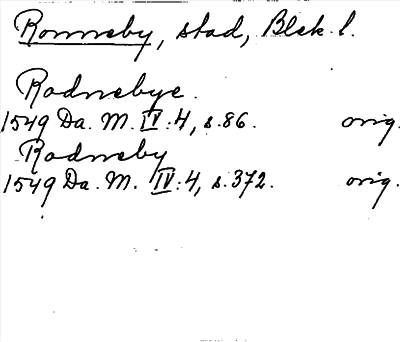 Ronneby, stad, Blek. l.
Rodnebye.
1549 Da. M. IV:4, s. 86. orig.
Rodneby
1549 Da. M. IV:4, s. 372. orig.